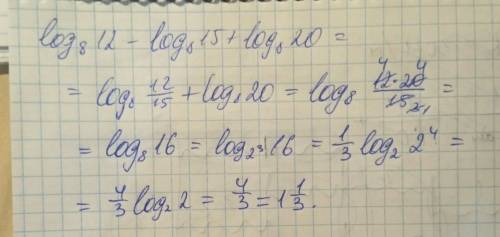 log₈12 - log₈15 + log₈20 =
= log₈ 12/15 + log₈20 = log₈ (12·20)/15 =
= log₈16 = log₂³16 = 1/3 log₂ 2⁴ =
= 4/3 log₂ 2 = 4/3 = 1 1/3.